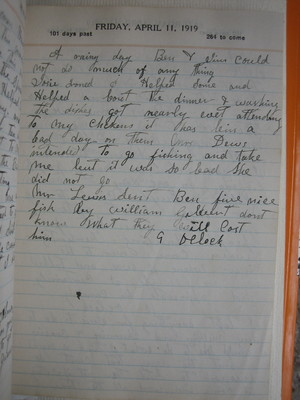 FRIDAY, APRIL 11, 1919
101 days past 264 to come
A rainy day Ben & Jim could
not do much of any thing
I Helped some and
Helped a bout the dinner & washing
the dishes got nearly wet attending
to my chickens it has bin a
bad day on them Mrs Dews
intended to go fishing and take
me but it was so bad she
did not go
Mr Lewis sent Ben five nice
fish by william Gilbert dont
know what they will Cost
him 9 OClock